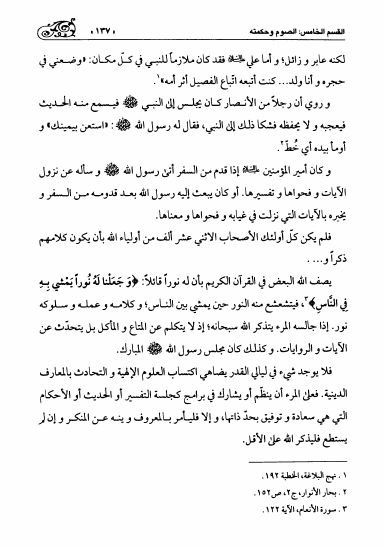 القسم الخامس: الصوم وحكمته
﴿١٣٧﴾
لكنه عابر و زائل؛ و أما علي ﷺ فقد كان ملازماً للنبي في كلّ مكان: «وضعني في
حجره و أنا ولد... كنت أتبعه اتّباع الفصيل أثر أمه»١.
و روي أن رجلاً من الأنصار كان يجلس إلى النبي ﷺ فيسمع منه الحديث
فيعجبه و لا يحفظه فشكا ذلك إلى النبي، فقال له رسول الله ﷺ: «استعن بيمينك» و
أومأ بيده أي خُطّ٢.
و كان أمير المؤمنين إذا قدم من السفر أتى رسول الله ﷺ و سأله عن نزول
الآيات و فحواها و تفسيرها. أو كان يبعث إليه رسول الله بعد قدومه من السفر و
يخبره بالآيات التي نزلت في غيابه و فحواها و معناها.
فلم يكن كلّ أولئك الأصحاب الاثني عشر ألف من أولياء الله بأن يكون كلامهم
ذكراً و... .
يصف الله البعض في القرآن الكريم بأن له نوراً قائلاً: ﴿وَ جَعَلْنا لَهُ نُوراً يَمْشي بِهِ
فِي النَّاسِ﴾٣، فيتشعشع منه النور حين يمشي بين الناس؛ و كلامه و عمله و سلوكه
نور. إذا جالسه المرء يتذكر الله سبحانه؛ إذ لا يتكلم عن المتاع و المأكل بل يتحدّث عن
الآيات و الروايات. و كذلك كان مجلس رسول الله ﷺ المبارك.
فلا يوجد شيء في ليالي القدر يضاهي اكتساب العلوم الإلهية و التحادث بالمعارف
الدينية. فعلى المرء أن ينظّم أو يشارك في برامج كجلسة التفسير أو الحديث أو الأحكام
التي هي سعادة و توفيق بحدّ ذاتها، و إلا فليأمر بالمعروف و ينه عن المنكر و إن لم
يستطع فليذكر الله على الأقل.
١ . نهج البلاغة، الخطبة ١٩٢.
٢ . بحار الأنوار، ج٢، ص١٥٢.
٣ . سورة الأنعام، الآية ١٢٢.